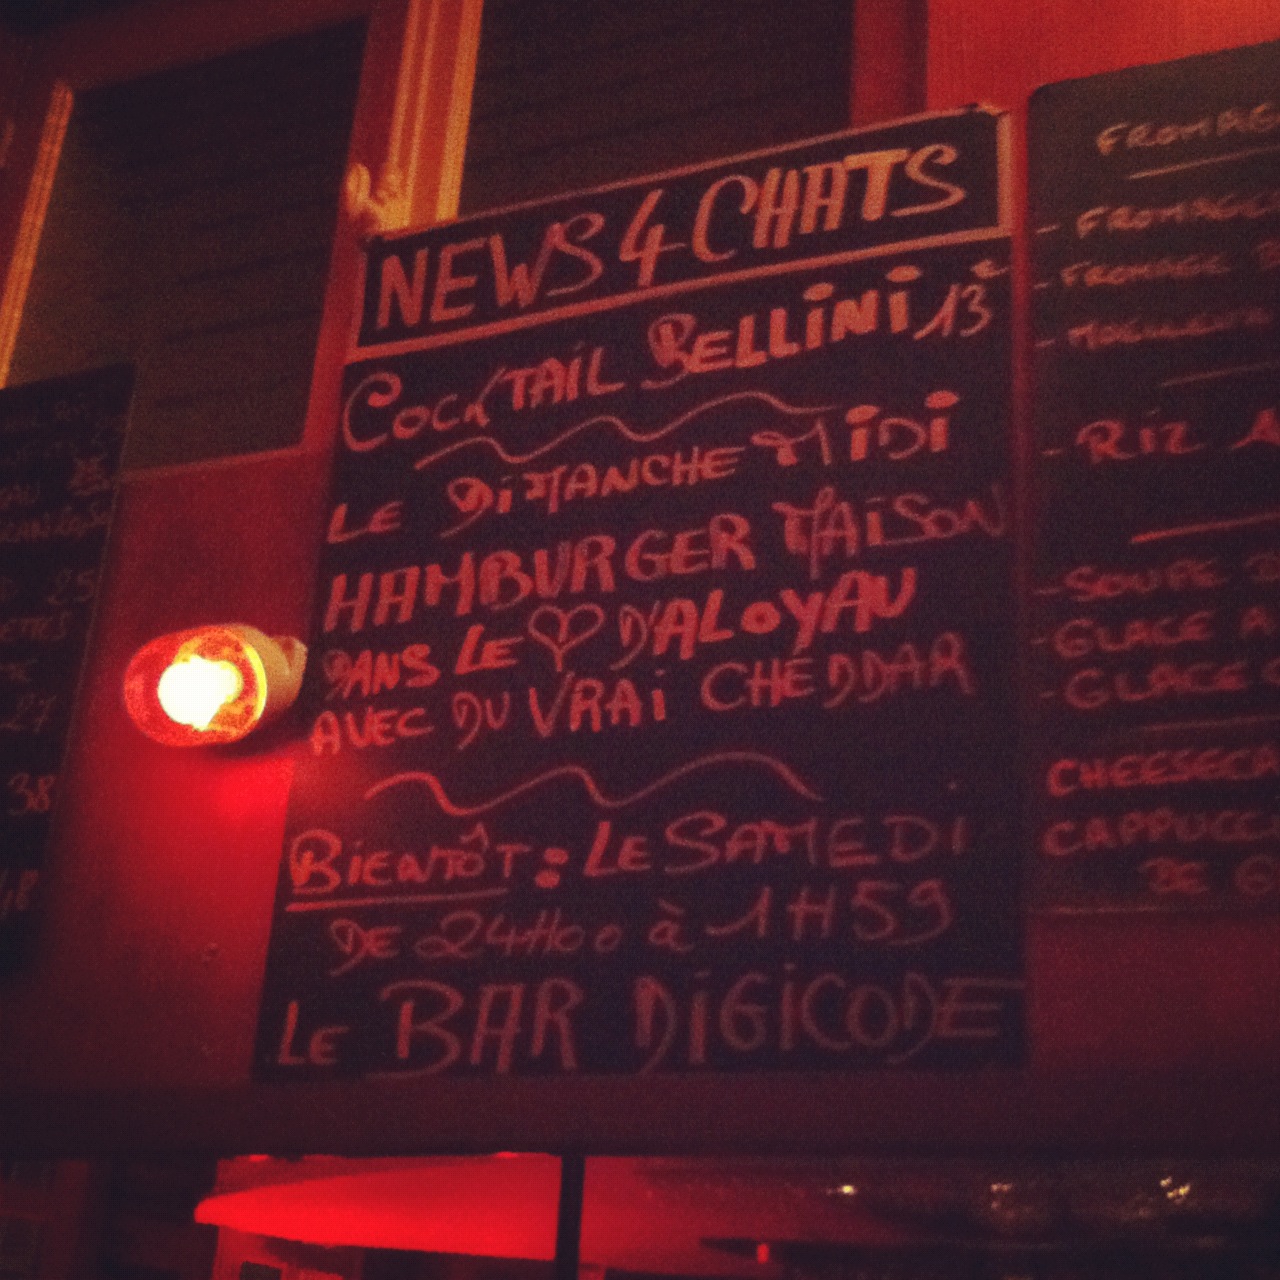 NEWS 4 CHATS
COCKTAIL BELLINI 13€
LE DIMANCHE MIDI
HAMBURGER MAISON
DANS LE ♡ D'ALOYAU
AVEC DU VRAI CHÉDDAR
BIENTÔT : LE SAMEDI
DE 24H00 à 1H59
LE BAR DIGICODE
FROMAG
- FROMAGE
- FROMAGE
- RIZ A
- SOUPE
- GLACE A
- GLACE
CHEESECA
CAPPUCC
DE G
25
27
38